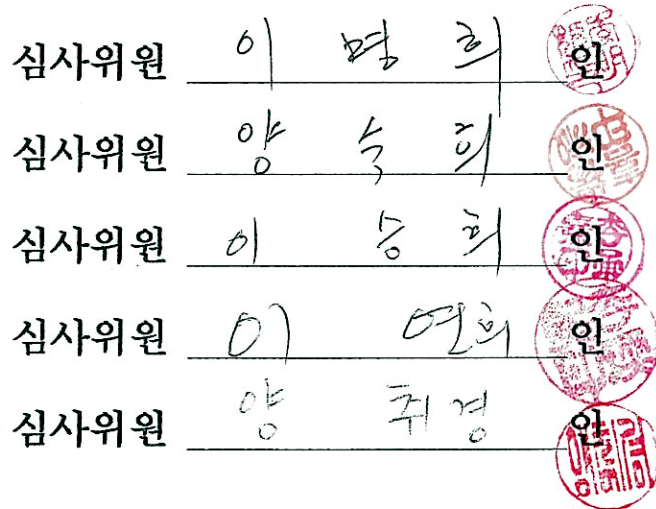 심사위원 이 명 희 인
심사위원 양 숙 희 인
심사위원 이 승 희 인
심사위원 이 연희 인
심사위원 양 취경 인